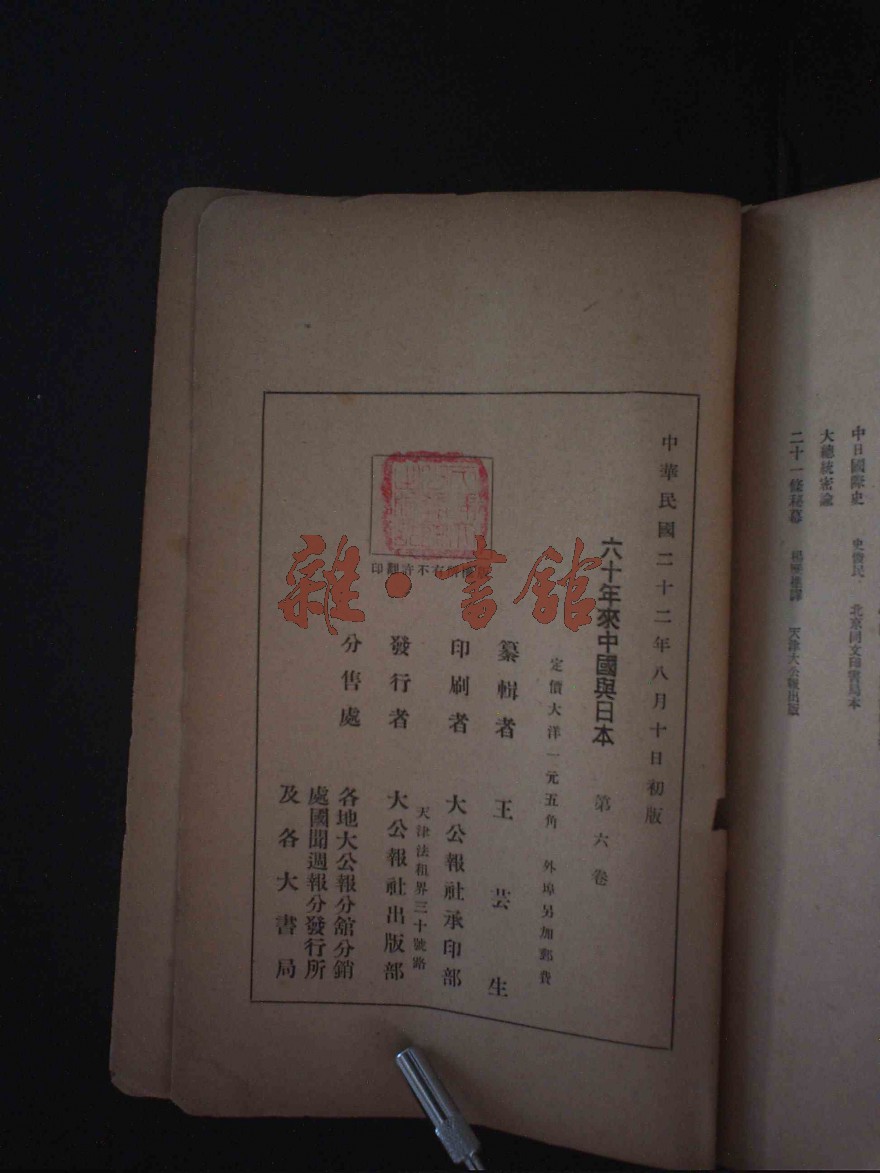 中日國際史　史俊民　北京同文印書局本
大總統密諭
二十一條秘幕　天津大公報出版
中華民國二十二年八月十日初版
六十年來中國與日本　第六卷
定價大洋一元五角　外埠另加郵費
纂輯者　王芸生
印刷者　大公報社承印部
天津法租界三十號路
發行者　大公報社出版部
分售處　各地大公報分館分銷
處國聞週報分發行所
及各大書局
版權所有不許翻印
雜·書館